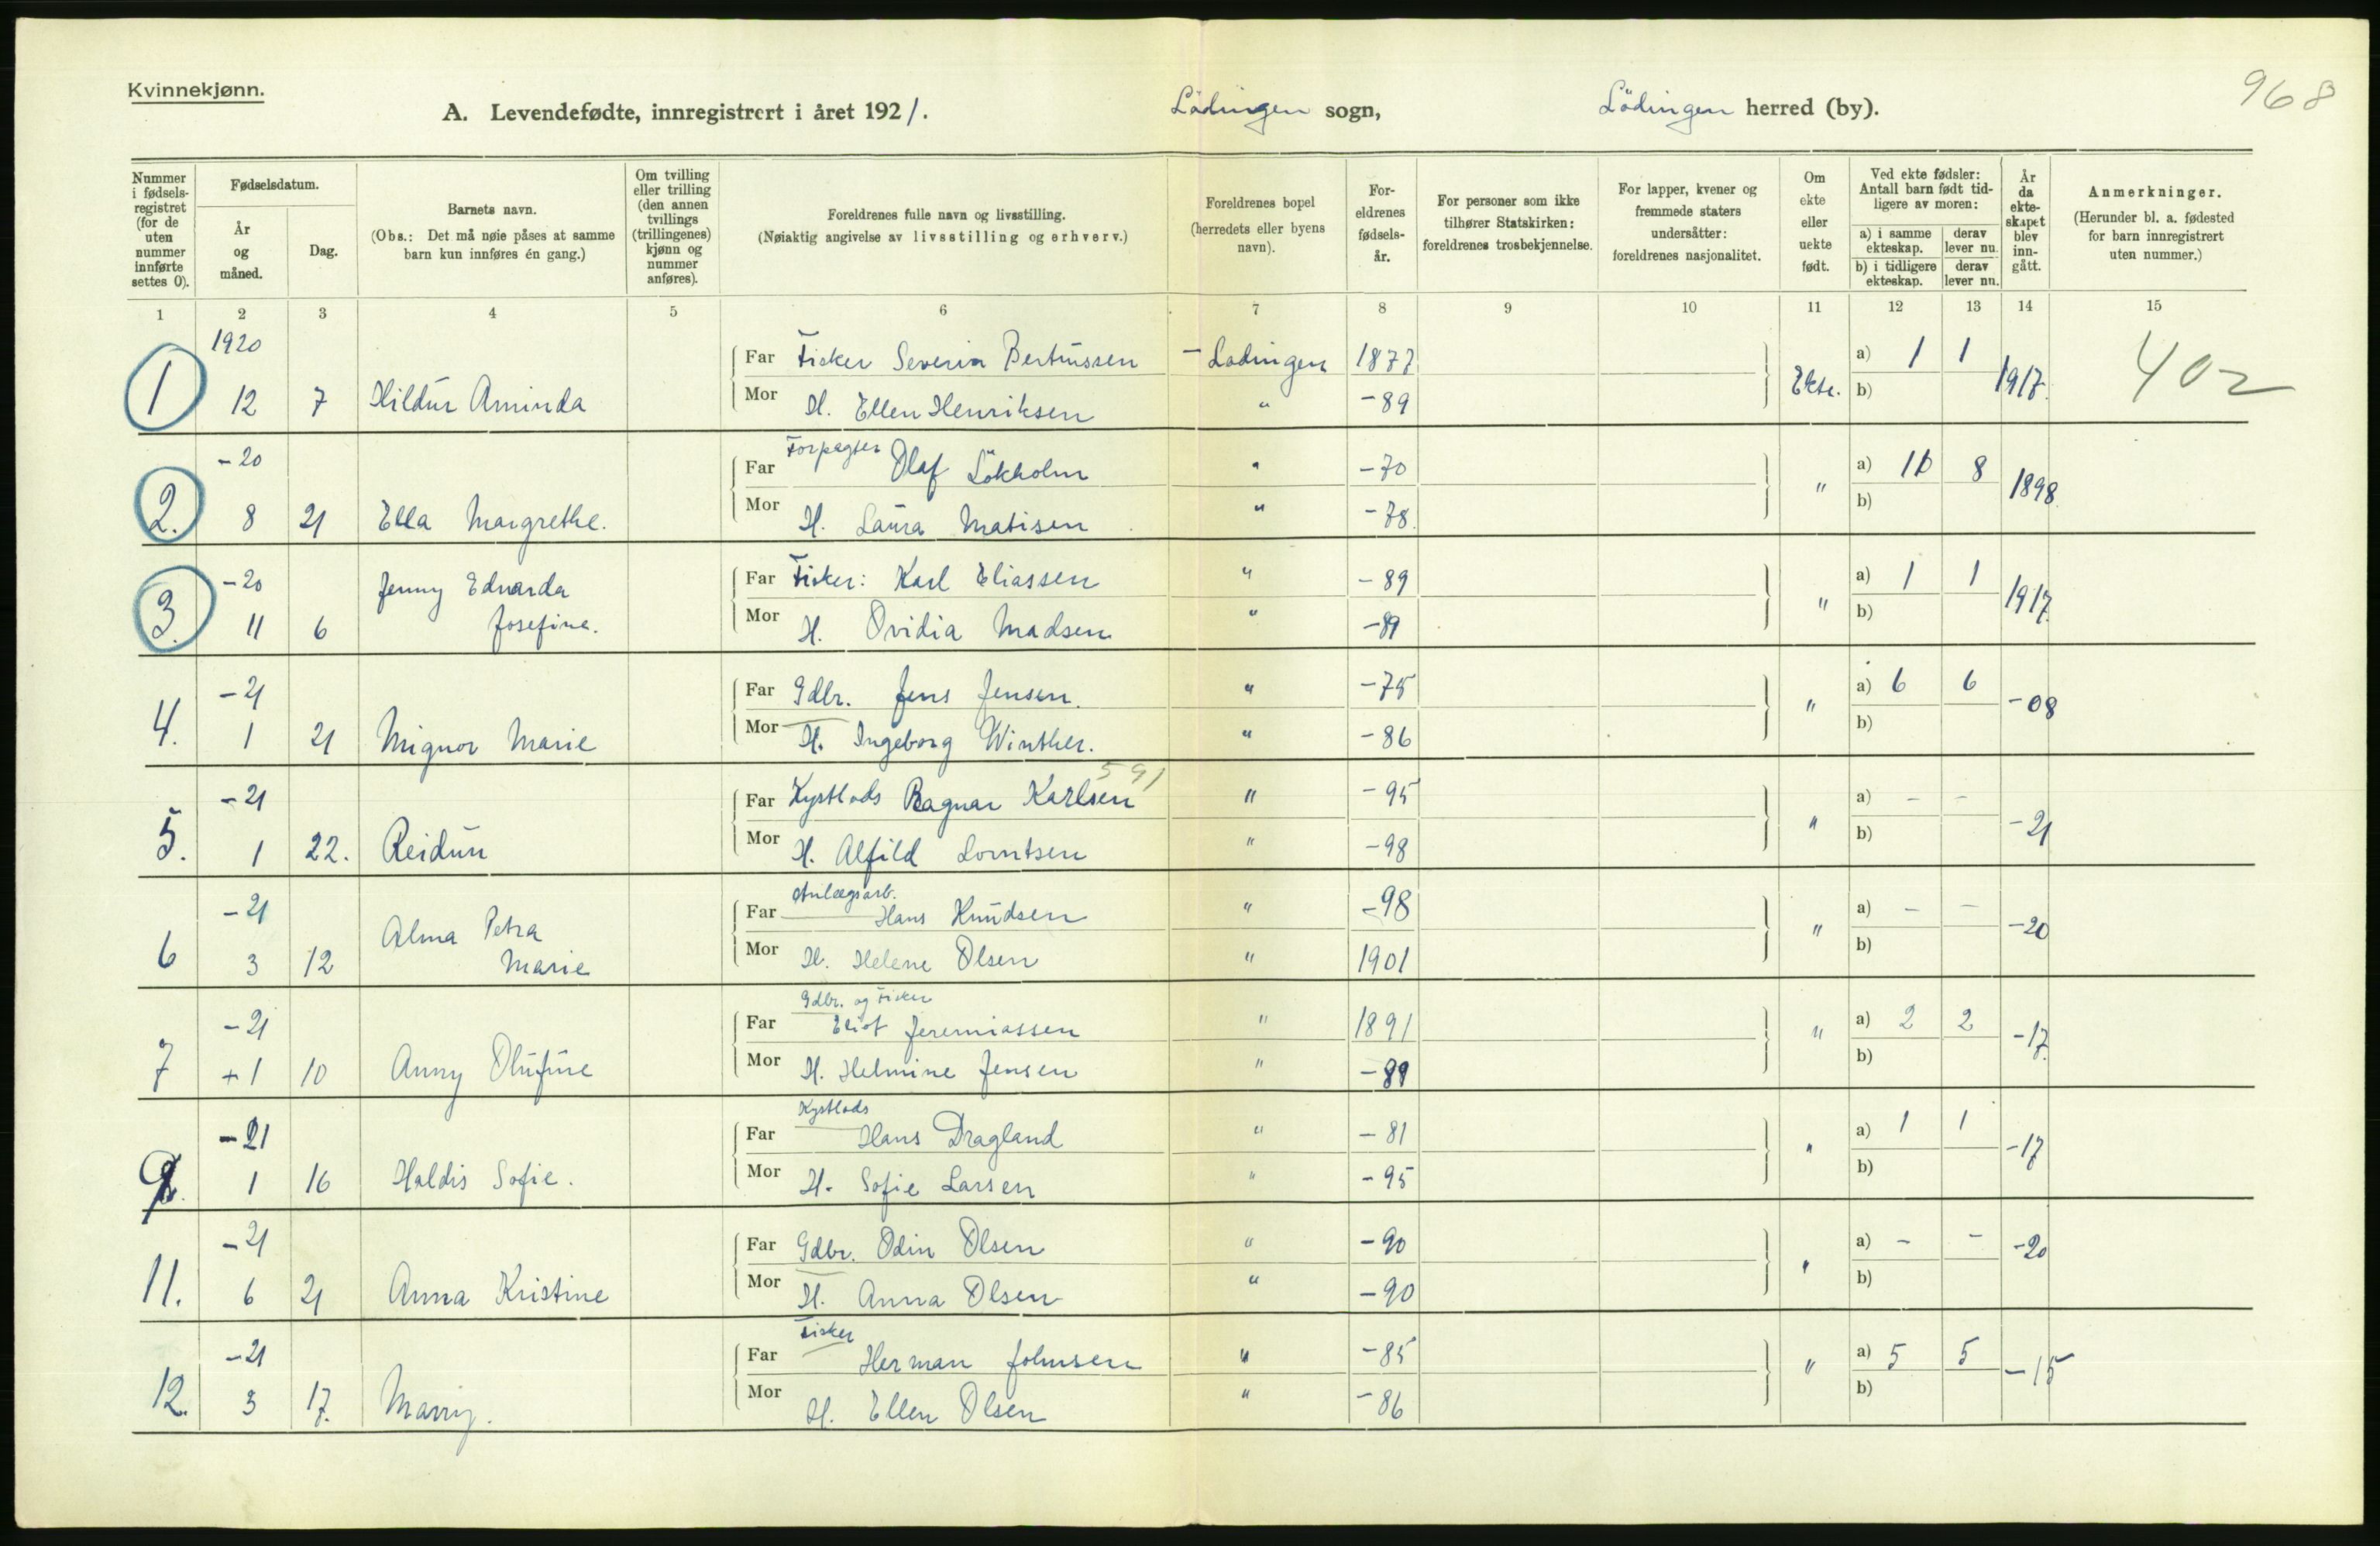 Kvinnekjønn.
968
A. Levendefødte, innregistrert i året 1921. Lödingen sogn, Lödingen herred (by).
Nummer i fødsels-registret (for de uten nummer innførte settes 0).
Fødselsdatum.
År og måned.
Dag.
Barnets navn.
(Obs.: Det må nøie påses at samme barn kun innføres én gang.)
Om tvilling eller trilling (den annen tvillings (trillingenes) kjønn og nummer anføres).
Foreldrenes fulle navn og livsstilling.
(Nøiaktig angivelse av livsstilling og erhverv.)
Foreldrenes bopel (herredets eller byens navn).
For-eldrenes fødsels-år.
For personer som ikke tilhører Statskirken: foreldrenes trosbekjennelse.
For lapper, kvener og fremmede staters undersåtter: foreldrenes nasjonalitet.
Om ekte eller uekte født.
Ved ekte fødsler: Antall barn født tid-ligere av moren:
a) i samme ekteskap. derav lever nu.
b) i tidligere ekteskap. derav lever nu.
År da ekte-skapet blev inn-gått.
Anmerkninger.
(Herunder bl. a. fødested for barn innregistrert uten nummer.)
1 2 3 4 5 6 7 8 9 10 11 12 13 14 15
1920
Far Fisker Severin Bertinussen – Lödingen 1877 a) 1 1
1 12 7 Hildur Aminda Ekte. 1917. 402
Mor H. Ellen Henriksen " -89 b)
-20 Forpagter
Far Olaf Lökholm " -70 a) 10 8
2. 8 21 Ella Margrethe. " 1898
Mor H. Laura Matisen " -78. b)
-20 Jenny Edvarda Far Fisker: Karl Eliassen " -89 a) 1 1
3. 11 6 Josefine. " 1917.
Mor H. Ovidia Madsen " -89 b)
-21 Far Gdbr. Jens Jensen. " -75 a) 6 6
4. 1 21 Mignor Marie " -08
Mor H. Ingeborg Winther. " -86 b)
591
-21 Far Kystlods Ragnar Karlsen " -95 a) - -
5. 1 22. Reidun " -21
Mor H. Alfild Lorntsen " -98 b)
Anlægsarb.
-21 Alma Petra Far Hans Knudsen " -98 a) - -
6 3 12 Marie " -20
Mor H. Helene Olsen " 1901 b)
Gdbr. og Fisker
-21 Far Eliot Jeremiassen " 1891 a) 2 2
7 +1 10 Anny Olufine " -17.
Mor H. Helmine Jensen " -89 b)
Kystlods
-21 Far Hans Dragland " -81 a) 1 1
9. 1 16 Haldis Sofie. " -17
Mor H. Sofie Larsen " -95 b)
-21 Far Gdbr. Odin Olsen " -90 a) - - -20
11. 6 21 Anna Kristine "
Mor H. Anna Olsen " -90 b)
Fisker
-21 Far Herman Johnsen " -85 a) 5 5
12. 3 17. Marry. " -15
Mor H. Ellen Olsen " -86 b)